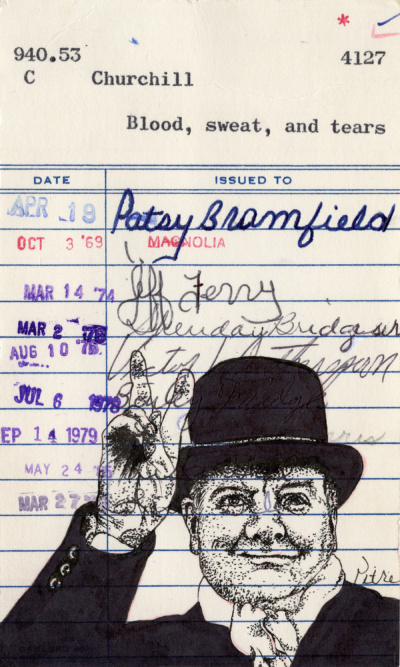 *
940.53 4127
C Churchill
Blood, sweat, and tears
DATE ISSUED TO
APR 19 Patsy Bramfield
OCT 3 '69 MAGNOLIA
MAR 14 '74 Jeff Terry
MAR 2 Brenda Bridges
AUG 10 Victor
JUL 6 1978
EP 14 1979
MAY 24
MAR 27
Petre